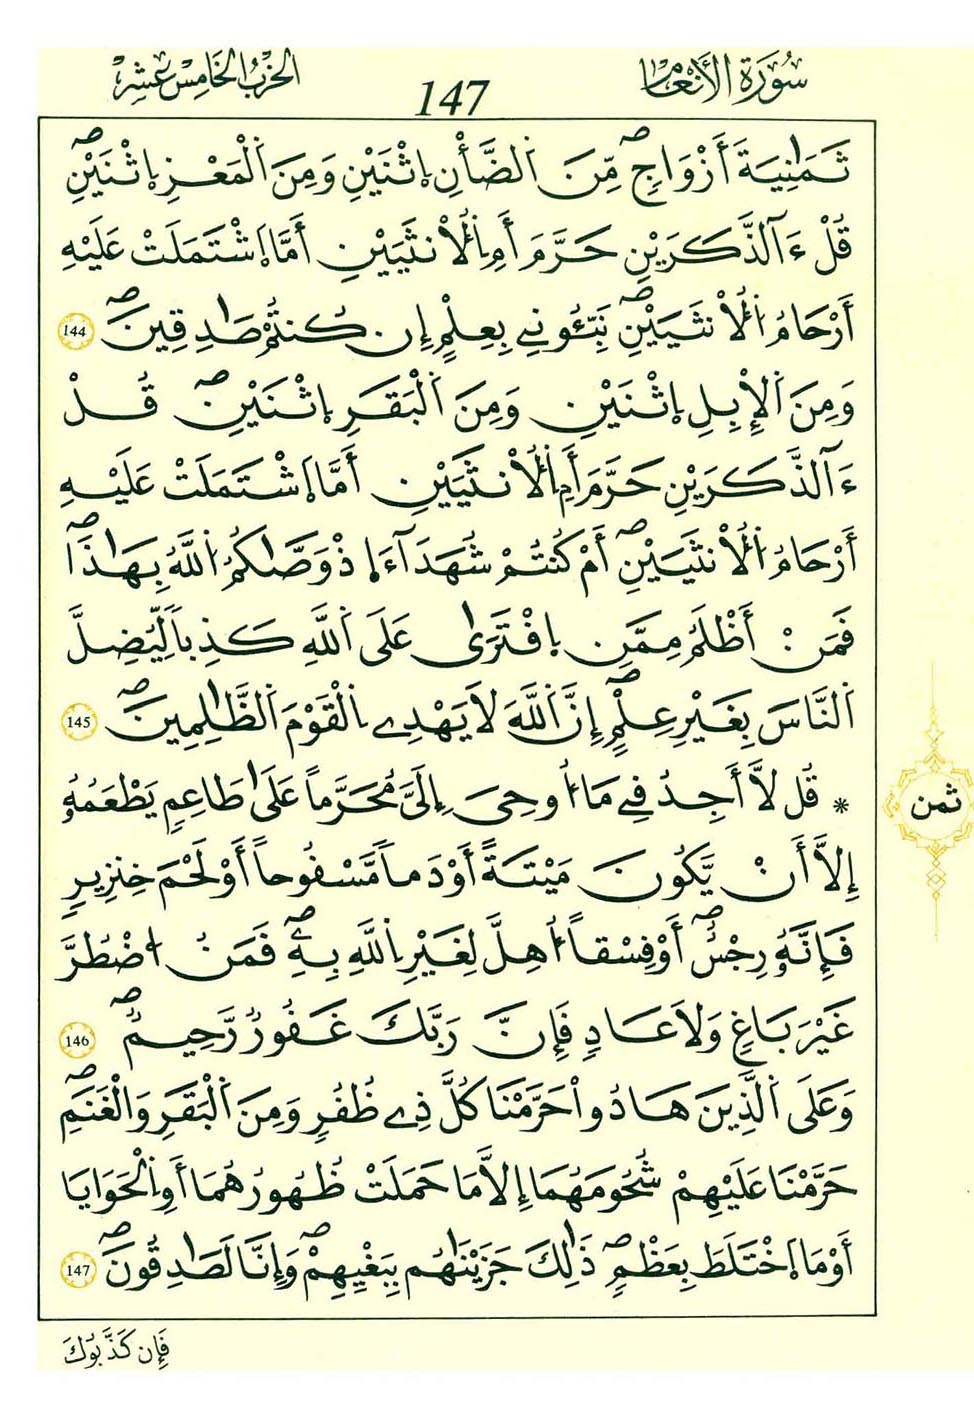 سُورَةُ الأَنْعَامِ
147
الحِزْبُ الخَامِس عَشَر
ثَمَٰنِيَةَ أَزْوَاجٍۖ مِّنَ اَ۬لضَّأْنِ اِ۪ثْنَيْنِ وَمِنَ اَ۬لْمَعْزِ اِ۪ثْنَيْنِۖ
قُلْ ءَآلذَّكَرَيْنِ حَرَّمَ أَمِ اِ۬لُانثَيَيْنِ أَمَّا اَ۪شْتَمَلَتْ عَلَيْهِ
أَرْحَامُ اُ۬لُانثَيَيْنِۖ نَبِّـُٔونِے بِعِلْمٍ إِن كُنتُمْ صَٰدِقِينَۖ 144
وَمِنَ اَ۬لْإِبِلِ اِ۪ثْنَيْنِ وَمِنَ اَ۬لْبَقَرِ اِ۪ثْنَيْنِۖ قُلْ
ءَآلذَّكَرَيْنِ حَرَّمَ أَمِ اِ۬لُانثَيَيْنِ أَمَّا اَ۪شْتَمَلَتْ عَلَيْهِ
أَرْحَامُ اُ۬لُانثَيَيْنِۖ أَمْ كُنتُمْ شُهَدَآءَ اِ۪ذْ وَصَّىٰكُمُ اُ۬للَّهُ بِهَٰذَاۖ
فَمَنْ أَظْلَمُ مِمَّنِ اِ۪فْتَرَىٰ عَلَى اَ۬للَّهِ كَذِباً لِّيُضِلَّ
اَ۬لنَّاسَ بِغَيْرِ عِلْمٍۖ إِنَّ اَ۬للَّهَ لَا يَهْدِے اِ۬لْقَوْمَ اَ۬لظَّٰلِمِينَۖ 145
* قُل لَّا أَجِدُ فِے مَا أُوحِىَ إِلَىَّ مُحَرَّماً عَلَىٰ طَاعِمٍ يَطْعَمُهُۥ
إِلَّا أَنْ يَّكُونَ مَيْتَةً أَوْ دَماً مَّسْفُوحاً أَوْ لَحْمَ خِنزِيرٍ
فَإِنَّهُۥ رِجْسٌۖ أَوْ فِسْقاً أُهِلَّ لِغَيْرِ اِ۬للَّهِ بِهِۦۖ فَمَنُ اُ۪ضْطُرَّ
غَيْرَ بَاغٍ وَلَا عَادٍ فَإِنَّ رَبَّكَ غَفُورٌ رَّحِيمٌۖ 146
وَعَلَى اَ۬لَّذِينَ هَادُواْ حَرَّمْنَا كُلَّ ذِے ظُفُرٍ وَمِنَ اَ۬لْبَقَرِ وَالْغَنَمِۖ
حَرَّمْنَا عَلَيْهِمْ شُحُومَهُمَا إِلَّا مَا حَمَلَتْ ظُهُورُهُمَا أَوِ اِ۬لْحَوَايَا
أَوْ مَا اَ۪خْتَلَطَ بِعَظْمٍۖ ذَٰلِكَ جَزَيْنَٰهُم بِبَغْيِهِمْۖ وَإِنَّا لَصَٰدِقُونَۖ 147
ثمن
فَإِن كَذَّبُوكَ